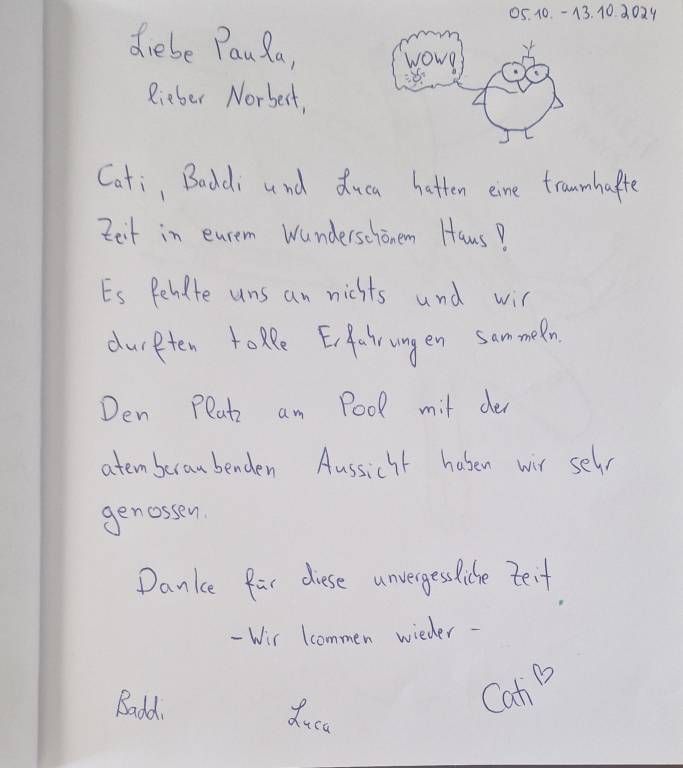 05.10. - 13.10.2024
Liebe Paula,
WOW!
lieber Norbert,
Cati, Baddi und Luca hatten eine traumhafte
Zeit in eurem Wunderschönem Haus!
Es fehlte uns an nichts und wir
durften tolle Erfahrungen sammeln.
Den Platz am Pool mit der
atemberaubenden Aussicht haben wir sehr
genossen.
Danke für diese unvergessliche Zeit.
- Wir kommen wieder -
Baddi Luca Cati ♡